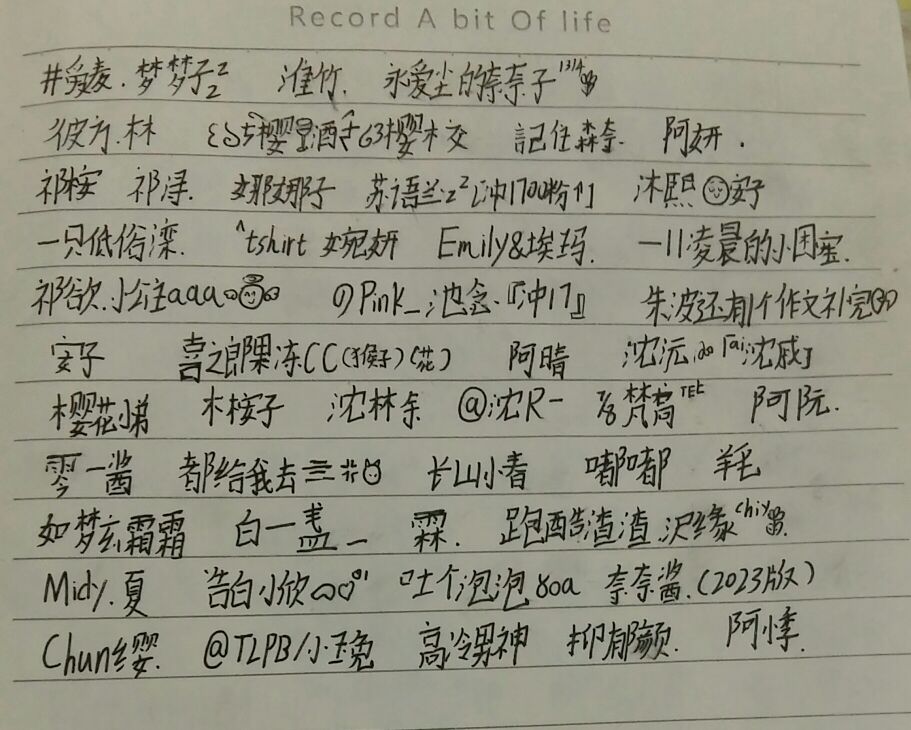 Record A bit Of life
#爱麦.梦梦子zz 淮竹. 永爱尘的奈奈子1314
彼方.林 樱 酒 63樱木交 記住森奈. 阿妍.
祁桉 祁浔. 娜娜子 苏语兰z²『冲1700粉!』 沐熙 安子
一只低俗滦. ^tshirt 婉妍 Emily&埃玛. 一11凌晨的小困宝.
祁欲.小公主aaa のPink_池念.『冲17』 朱波还有1个作文补完
安子 喜之郎果冻CC(猴子)(花) 阿晴 沈沅 「ai沈戚」
樱花小弟 木桉子 沈林余 @沈R一 TEE 阿阮.
雯一酱 都给我去 长山小春 嘟嘟嘟 羊毛
如梦玄霜霜 白一盏_ 霖. 跑酷渣渣.沢缘chiy
Midy.夏 告白小欣 吐个泡泡80a 奈奈酱.(2023版)
Chun缨. @TLPB/小玉兔 高冷男神 抑郁颜. 阿悸.